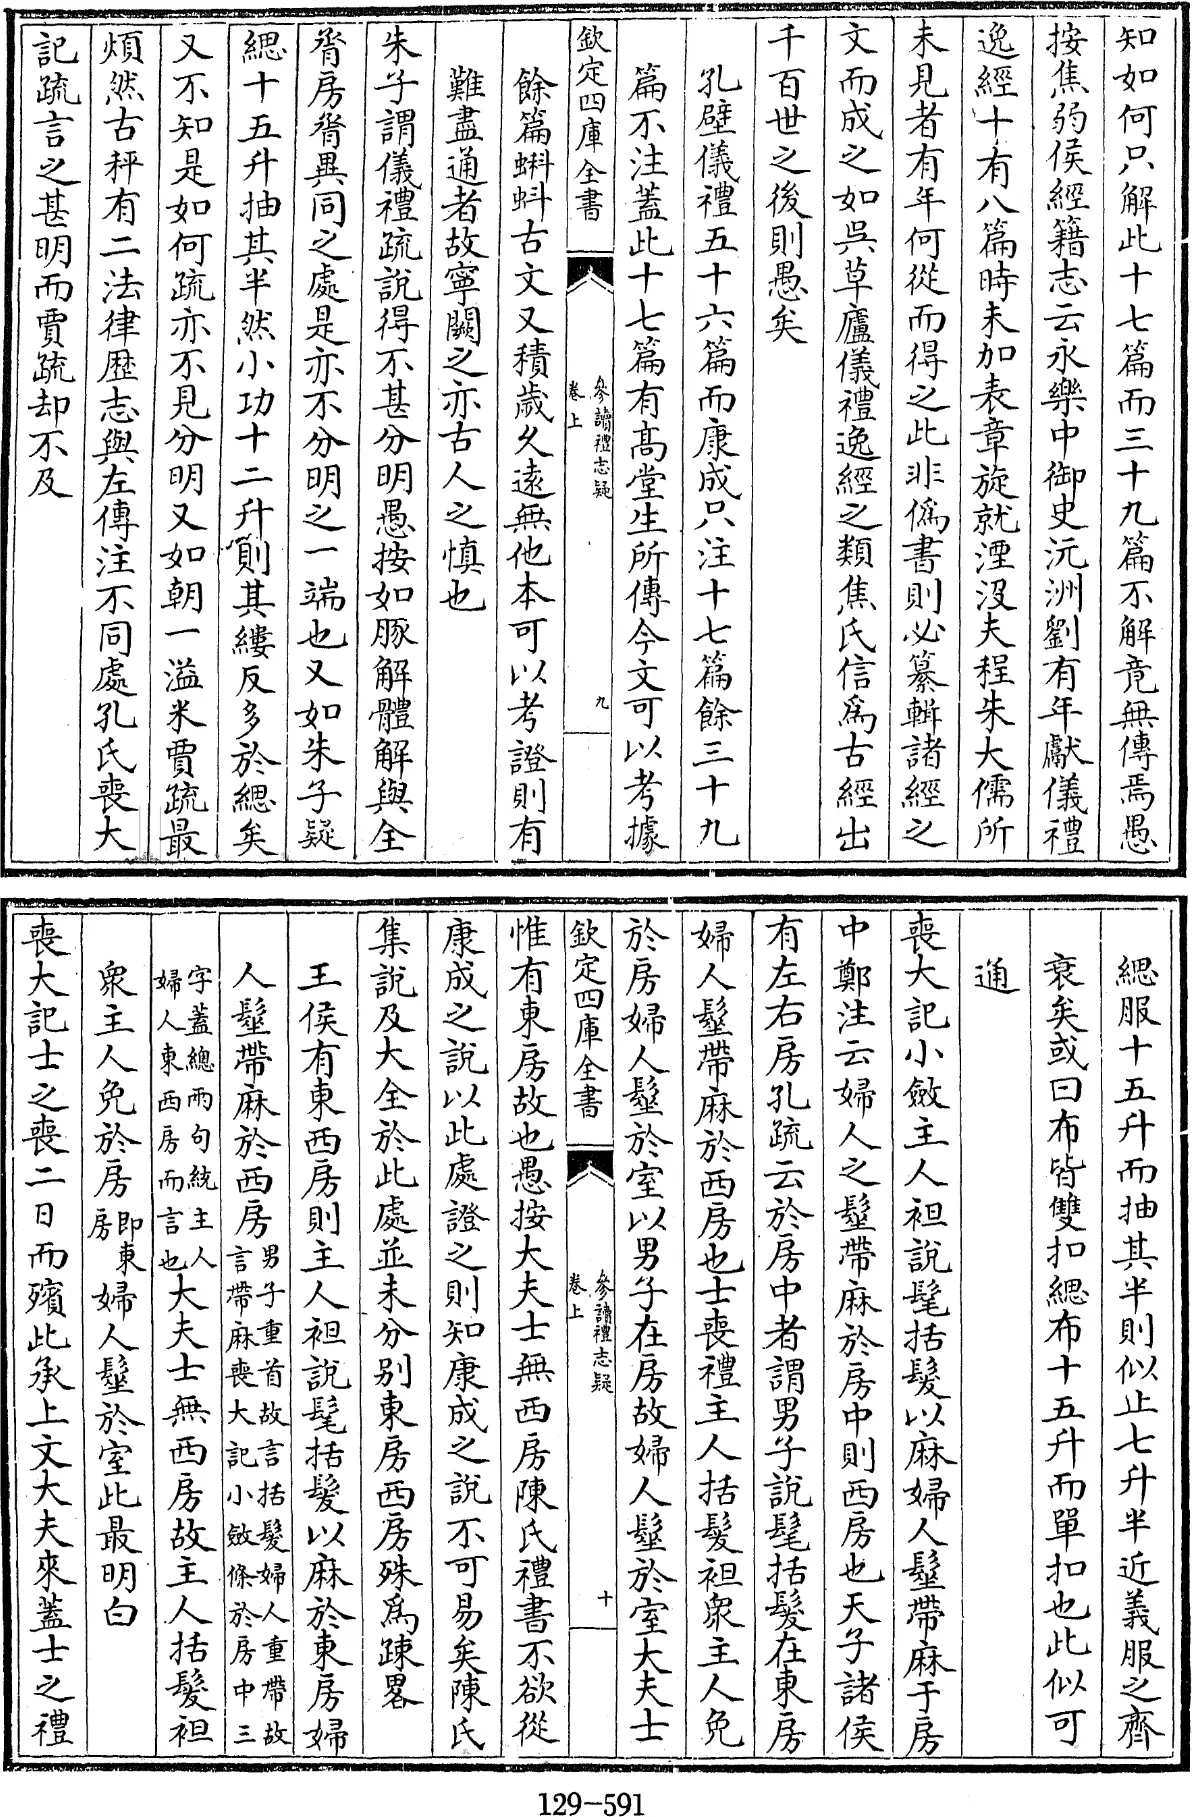 知如何只解此十七篇而三十九篇不解竟無傳焉愚
按焦弱侯經籍志云永樂中御史沅洲劉有年獻儀禮
逸經十有八篇時未加表章旋就湮沒夫程朱大儒所
未見者有年何從而得之此非僞書則必纂輯諸經之
文而成之如吳草廬儀禮逸經之類焦氏信爲古經出
千百世之後則愚矣
孔壁儀禮五十六篇而康成只注十七篇餘三十九
篇不注蓋此十七篇有高堂生所傳今文可以考據
欽定四庫全書
參讀禮志疑
卷上
九
餘篇蝌蚪古文又積歲久遠無他本可以考證則有
難盡通者故寧闕之亦古人之慎也
朱子謂儀禮疏說得不甚分明愚按如豚解體解與全
脀房脀異同之處是亦不分明之一端也又如朱子疑
緦十五升抽其半然小功十二升則其縷反多於緦矣
又不知是如何疏亦不見分明又如朝一溢米賈疏最
煩然古秤有二法律歷志與左傳注不同處孔氏喪大
記疏言之甚明而賈疏却不及
緦服十五升而抽其半則似止七升半近義服之齊
衰矣或曰布皆雙扣緦布十五升而單扣也此似可
通
喪大記小斂主人袒說髦括髮以麻婦人髽帶麻于房
中鄭注云婦人之髽帶麻於房中則西房也天子諸侯
有左右房孔疏云於房中者謂男子說髦括髮在東房
婦人髽帶麻於西房也士喪禮主人括髮袒衆主人免
於房婦人髽於室以男子在房故婦人髽於室大夫士
欽定四庫全書
參讀禮志疑
卷上
十
惟有東房故也愚按大夫士無西房陳氏禮書不欲從
康成之說以此處證之則知康成之說不可易矣陳氏
集說及大全於此處並未分别東房西房殊爲踈畧
王侯有東西房則主人袒說髦括髮以麻於東房婦
人髽帶麻於西房男子重首故言括髮婦人重帶故言帶麻喪大記小斂條於房中三
字蓋總兩句統主人婦人東西房而言也大夫士無西房故主人括髮袒
衆主人免於房即東房婦人髽於室此最明白
喪大記士之喪二日而殯此承上文大夫來蓋士之禮
129-591